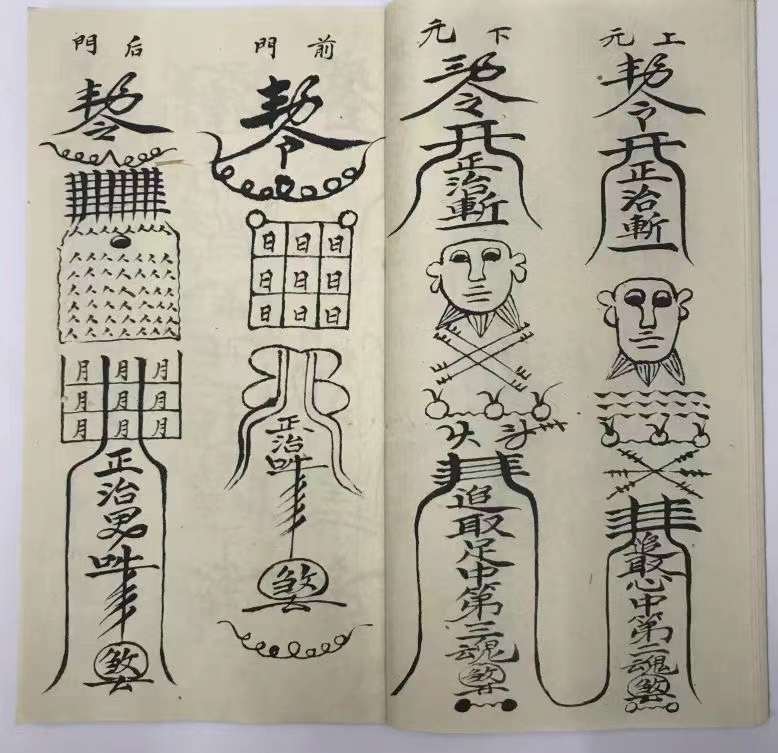 上元
勅令
正治斬
追取心中第二魂
下元
勅令
正治斬
追取足中第三魂
前門
勅令
日日日
日日日
日日日
正治
后門
勅令
月月月
月月月
月月月
正治男